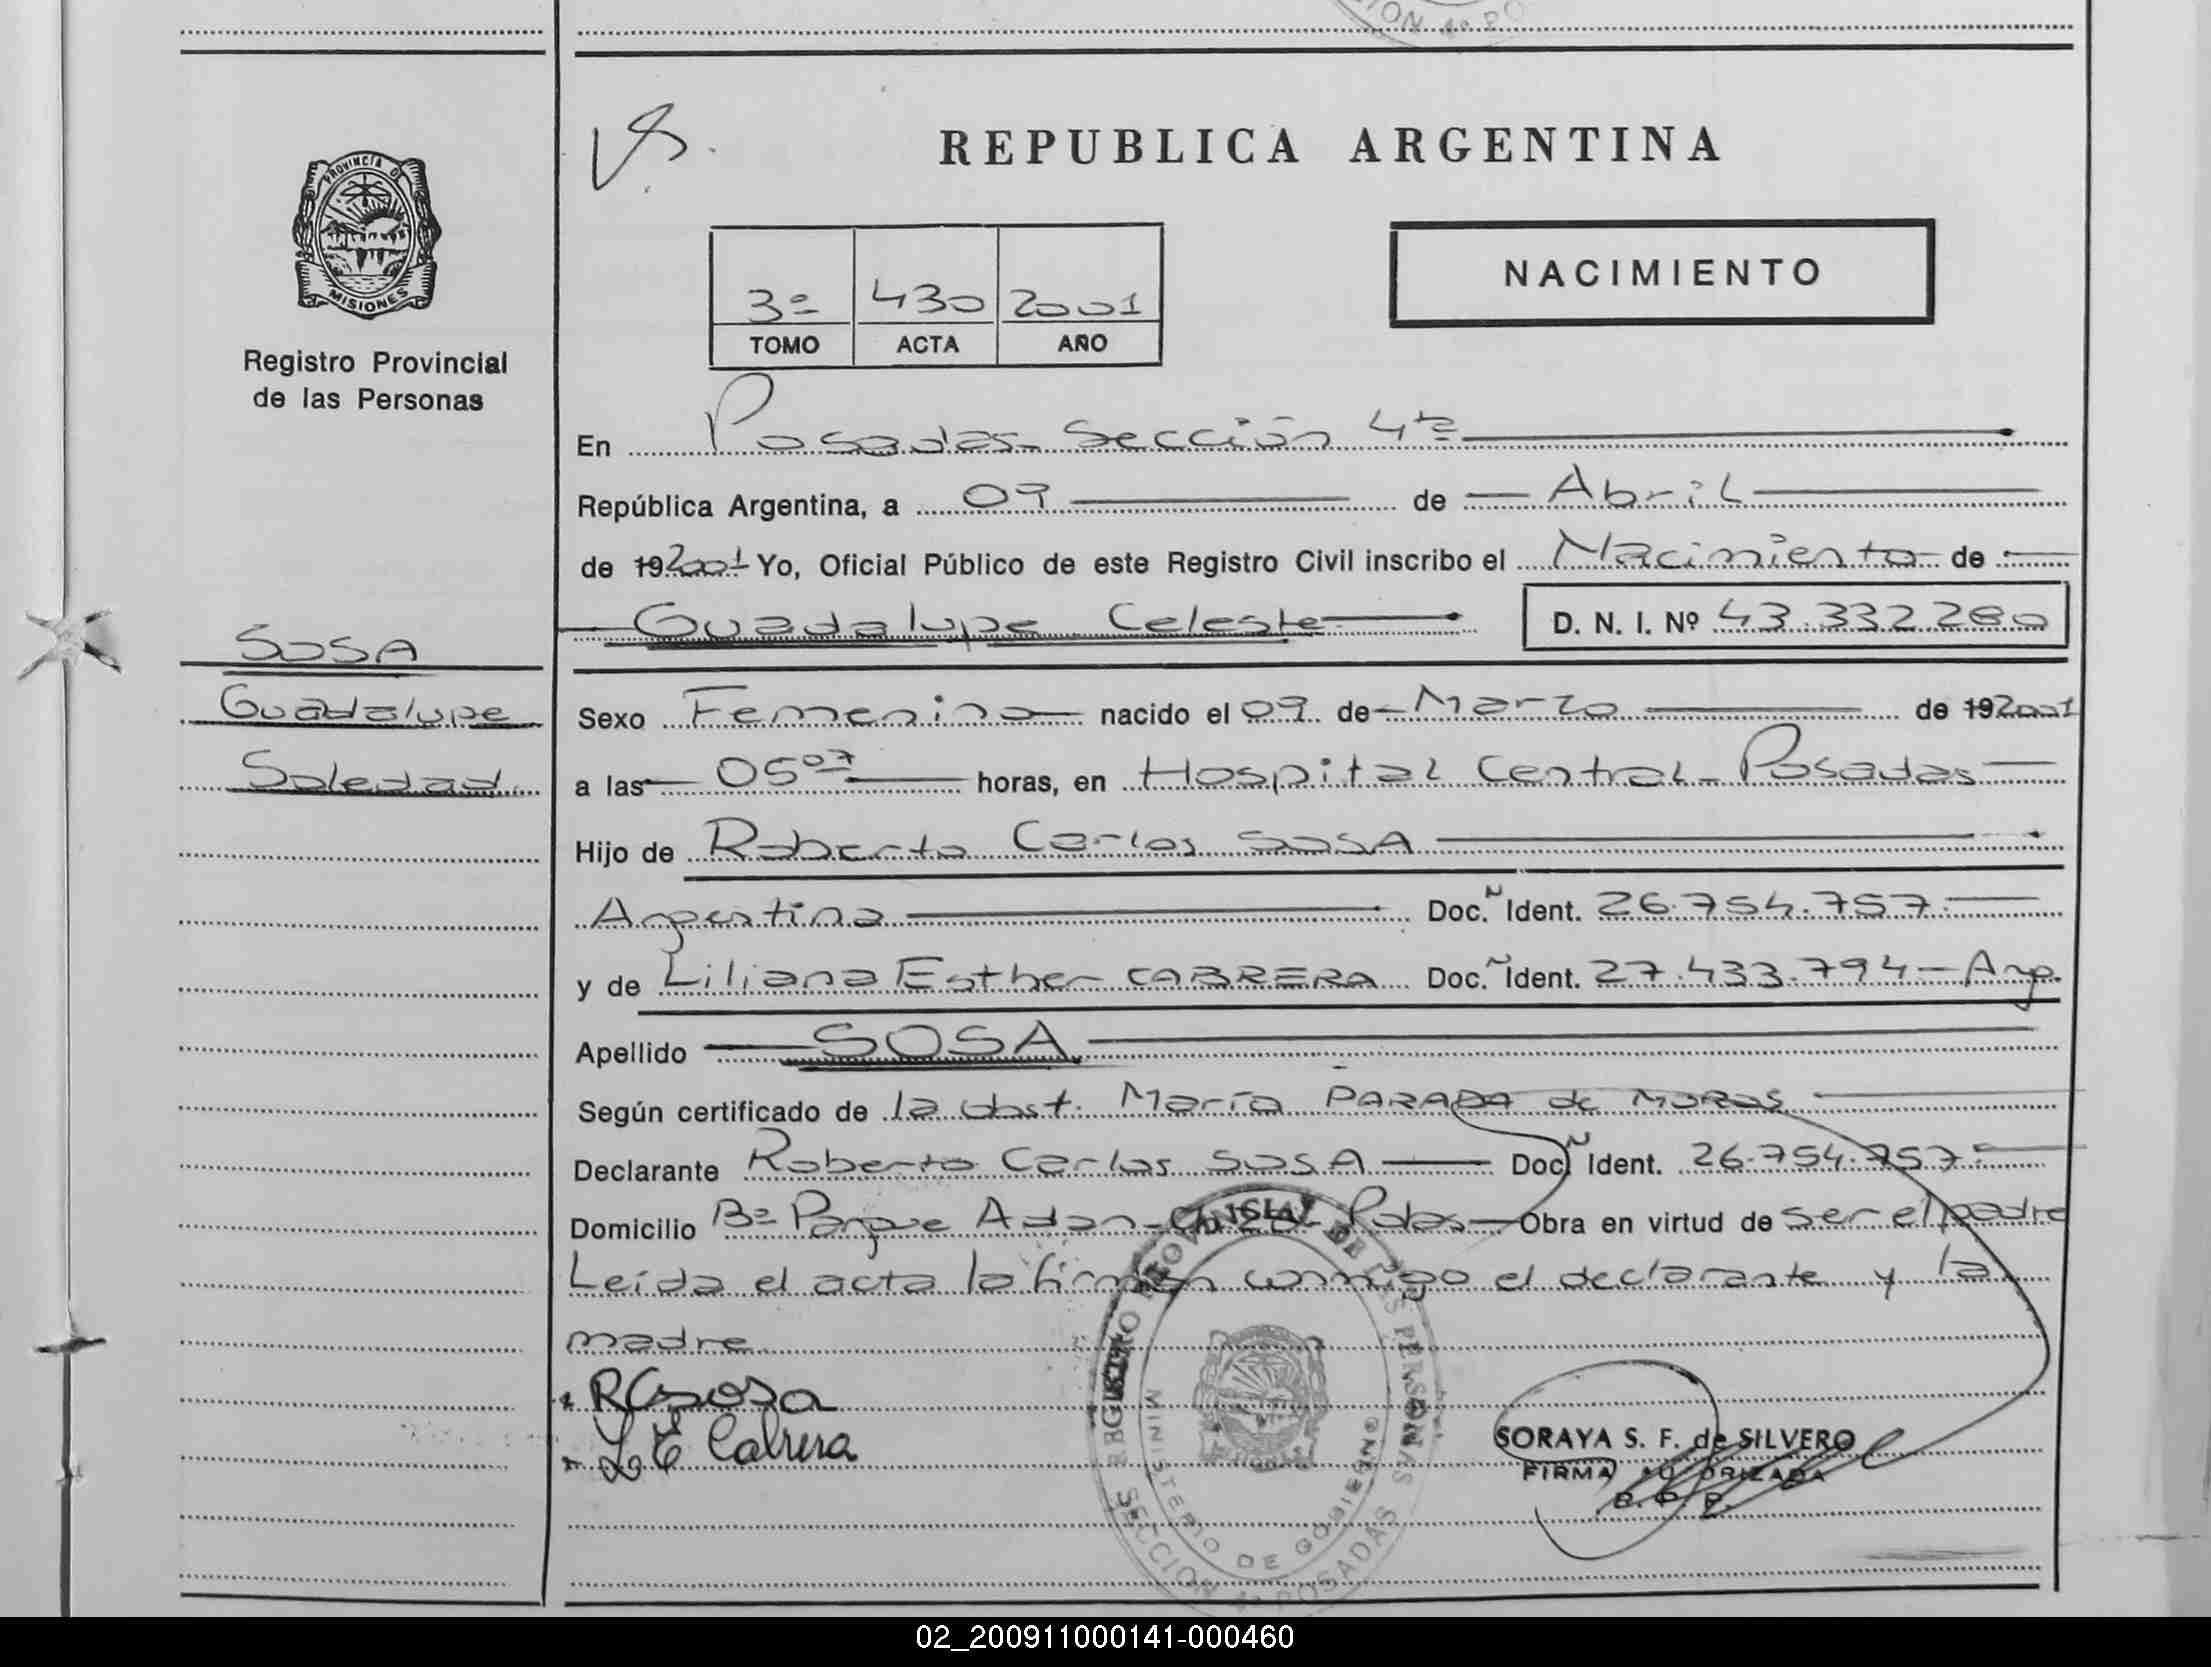 CION Nº PO
PROVINCIA DE
MISIONES
Registro Provincial
de las Personas
SOSA
Guadalupe
Soledad
REPUBLICA ARGENTINA
3º 430 2001
TOMO ACTA AÑO
NACIMIENTO
En Posadas Sección 4ta
República Argentina, a 09 de Abril
de 192001 Yo, Oficial Público de este Registro Civil inscribo el Nacimiento de
Guadalupe Celeste D. N. I. Nº 43.332.280
Sexo Femenino nacido el 09 de Marzo de 192001
a las 05 07 horas, en Hospital Central - Posadas
Hijo de Roberto Carlos SOSA
Argentina Doc. Ident. 26.754.757.
y de Liliana Esther CABRERA Doc. Ident. 27.433.794 - Arg.
Apellido SOSA
Según certificado de la obst. María PARADA de MORAS
Declarante Roberto Carlos SOSA Doc. Ident. 26.754.757
Domicilio Bº Parque Adam - Pdas Obra en virtud de ser el padre
Leída el acta la firman conmigo el declarante y la
madre.
RCSosa
L E Cabrera
REGISTRO PROVINCIAL DE LAS PERSONAS
MINISTERIO DE GOBIERNO
SECCION 4ª POSADAS
SORAYA S. F. de SILVERO
FIRMA AUTORIZADA
R. P. P.
02_200911000141-000460